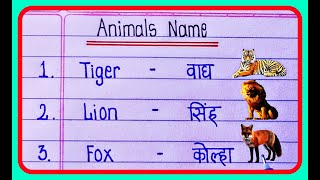 Animals Name
1. Tiger - वाघ
2. Lion - सिंह
3. Fox - कोल्हा